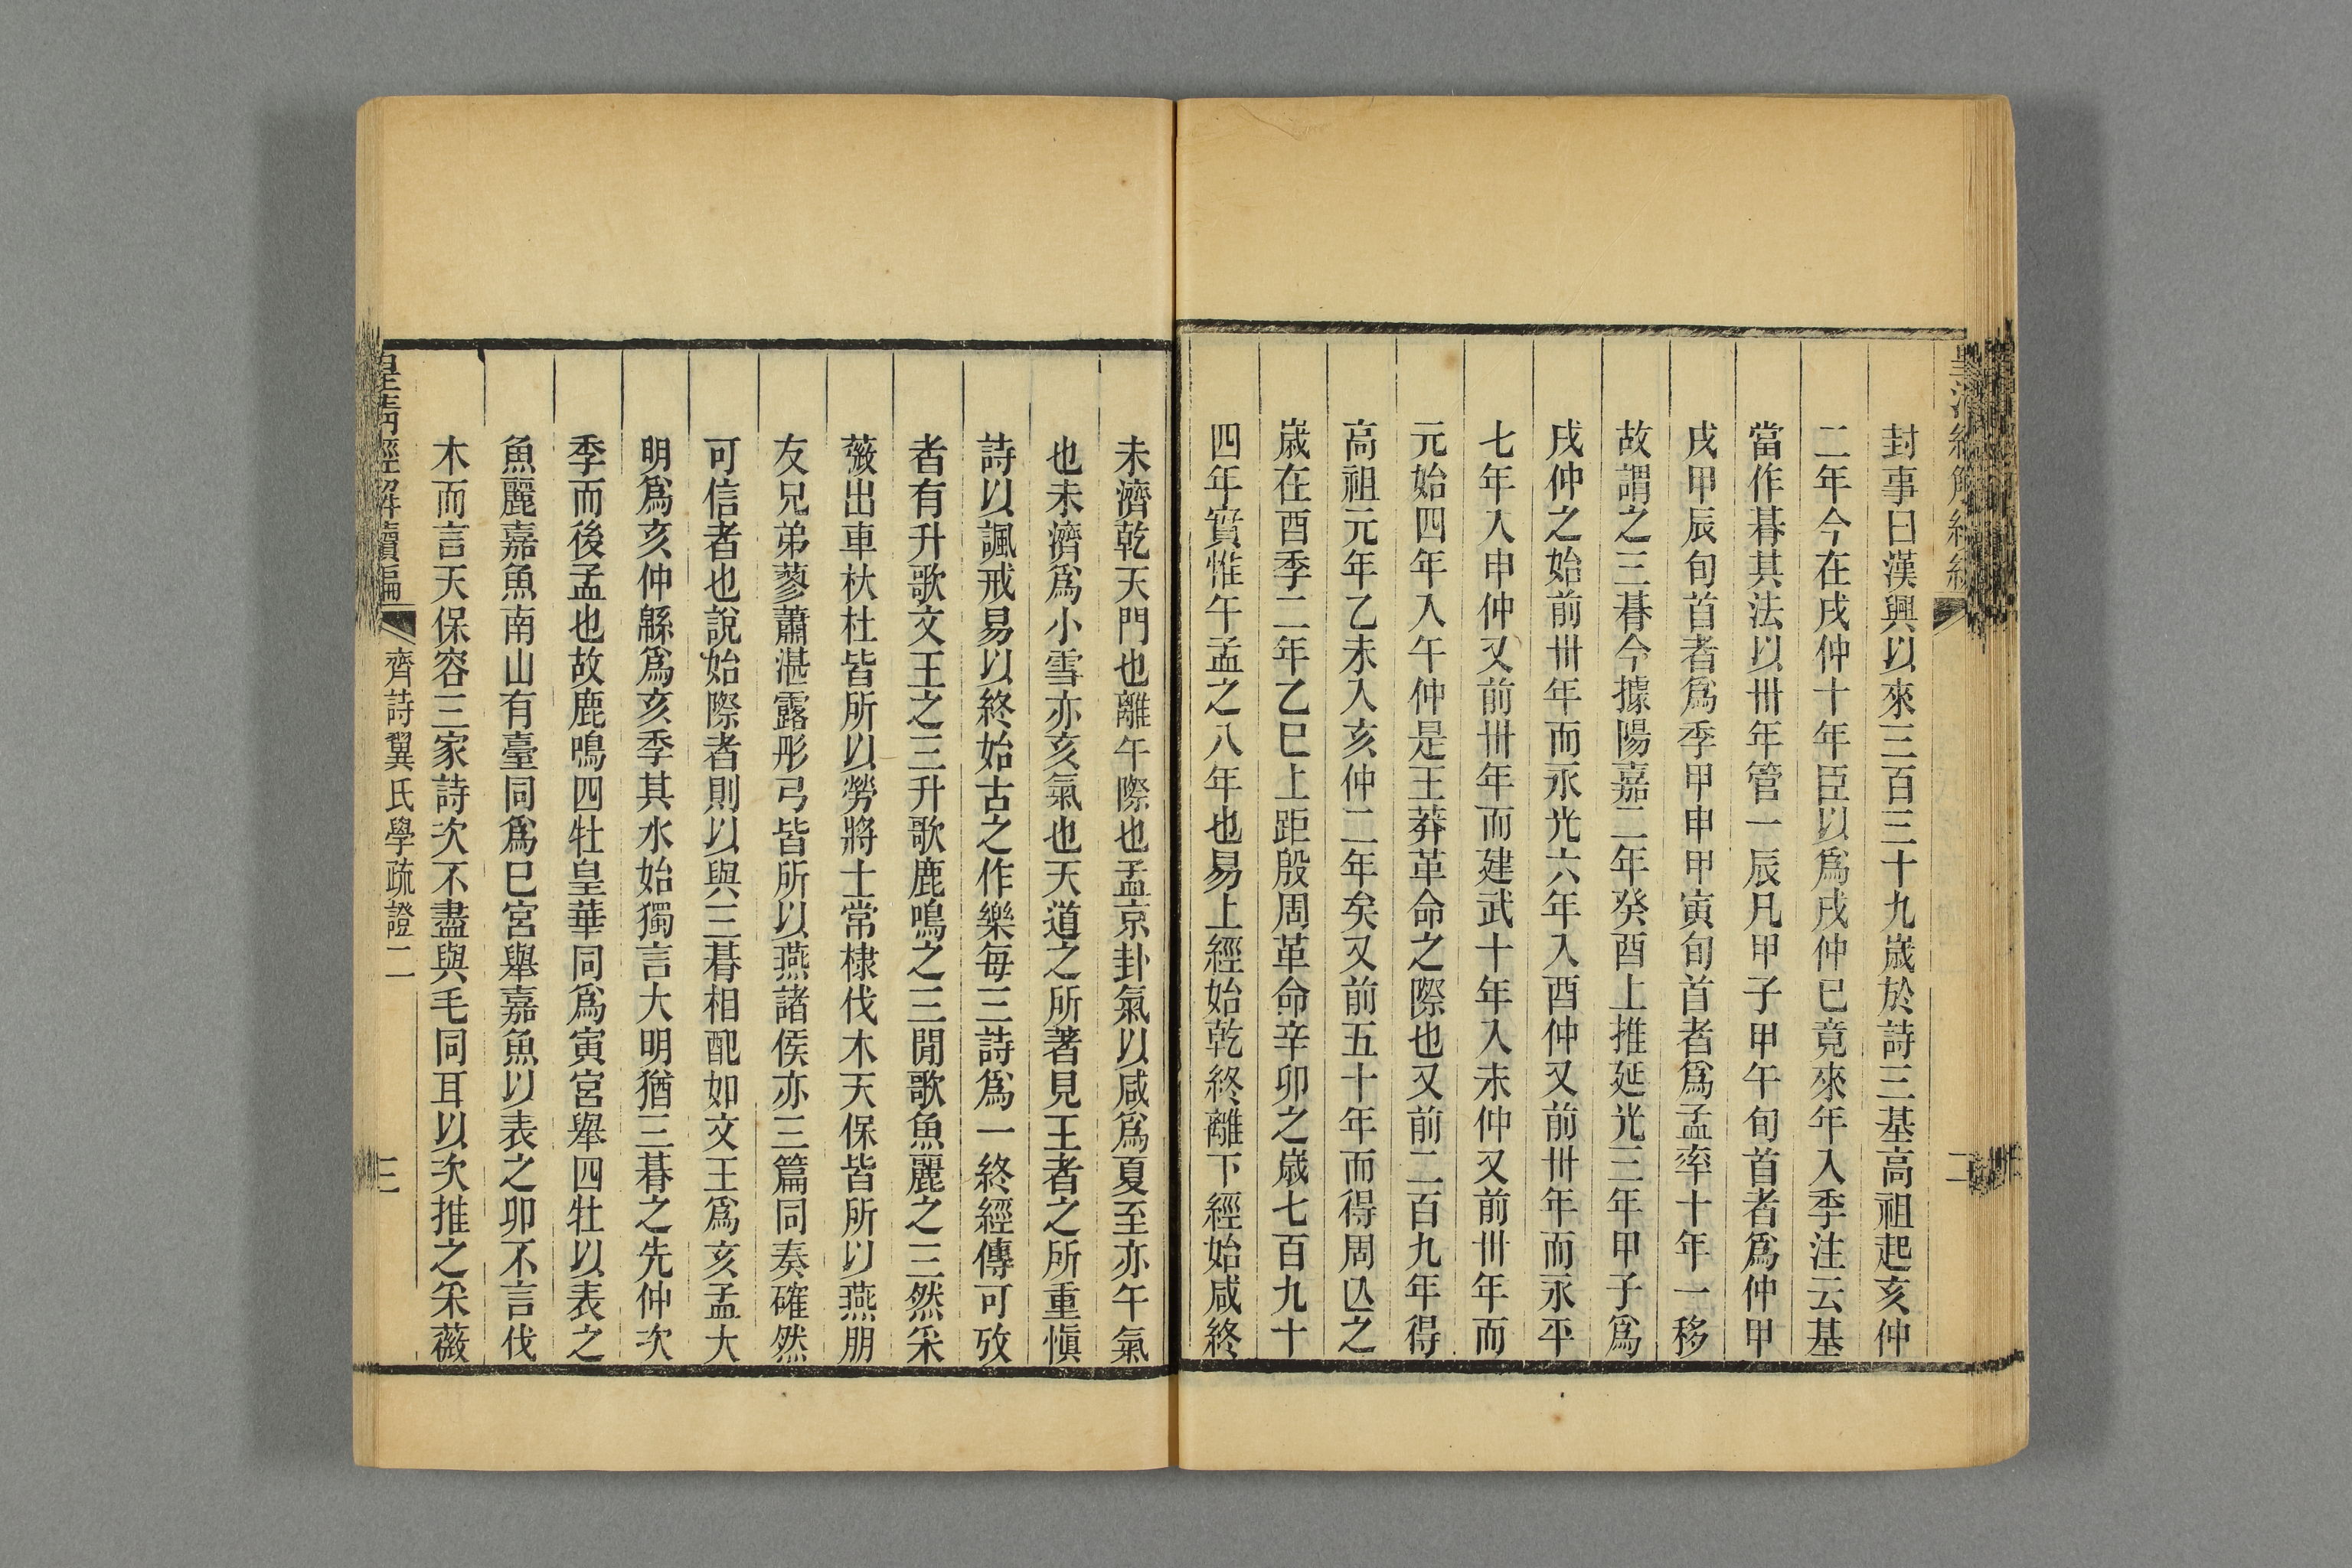 封事曰漢興以來三百三十九歲於詩三基高祖起亥仲
二年今在戌仲十年臣以爲戌仲已竟來年入季注云基
當作朞其法以卅年管一辰凡甲子甲午旬首者爲仲甲
戌甲辰旬首者爲季甲申甲寅旬首者爲孟率十年一移
故謂之三朞今據陽嘉二年癸酉上推延光三年甲子爲
戌仲之始前卅年而永光六年入酉仲又前卅年而永平
七年入申仲又前卅年而建武十年入未仲又前卅年而
元始四年入午仲是王莽革命之際也又前二百九年得
高祖元年乙未入亥仲二年矣又前五十年而得周亾之
歲在酉季二年乙巳上距殷周革命辛卯之歲七百九十
四年實惟午孟之八年也易上經始乾終離下經始咸終
未濟乾天門也離午際也孟京卦氣以咸爲夏至亦午氣
也未濟爲小雪亦亥氣也天道之所著見王者之所重愼
詩以諷戒易以終始古之作樂每三詩爲一終經傳可攷
者有升歌文王之三升歌鹿鳴之三閒歌魚麗之三然采
薇出車杕杜皆所以勞將士常棣伐木天保皆所以燕朋
友兄弟蓼蕭湛露彤弓皆所以燕諸侯亦三篇同奏確然
可信者也說始際者則以與三朞相配如文王爲亥孟大
明爲亥仲緜爲亥季其水始獨言大明猶三朞之先仲次
季而後孟也故鹿鳴四牡皇華同爲寅宮舉四牡以表之
魚麗嘉魚南山有臺同爲巳宮舉嘉魚以表之卯不言伐
木而言天保容三家詩次不盡與毛同耳以次推之采薇
皇清經解續編
齊詩翼氏學疏證二
三